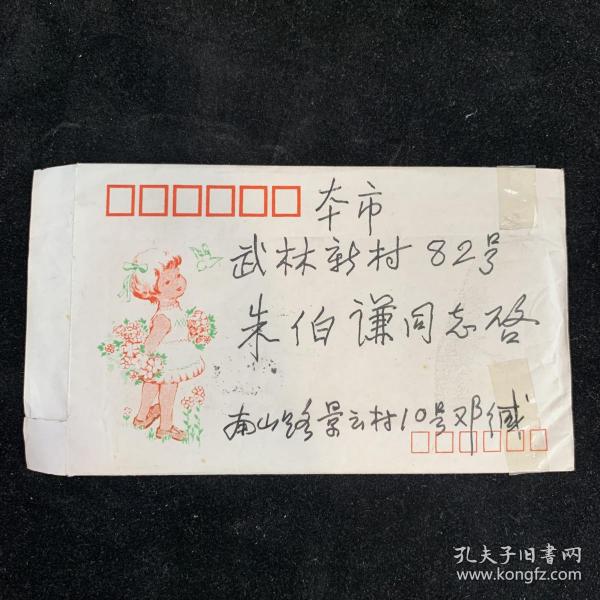 本市
武林新村82号
朱伯谦同志启
南山路景云村10号邓缄
孔夫子旧书网
www.kongfz.com